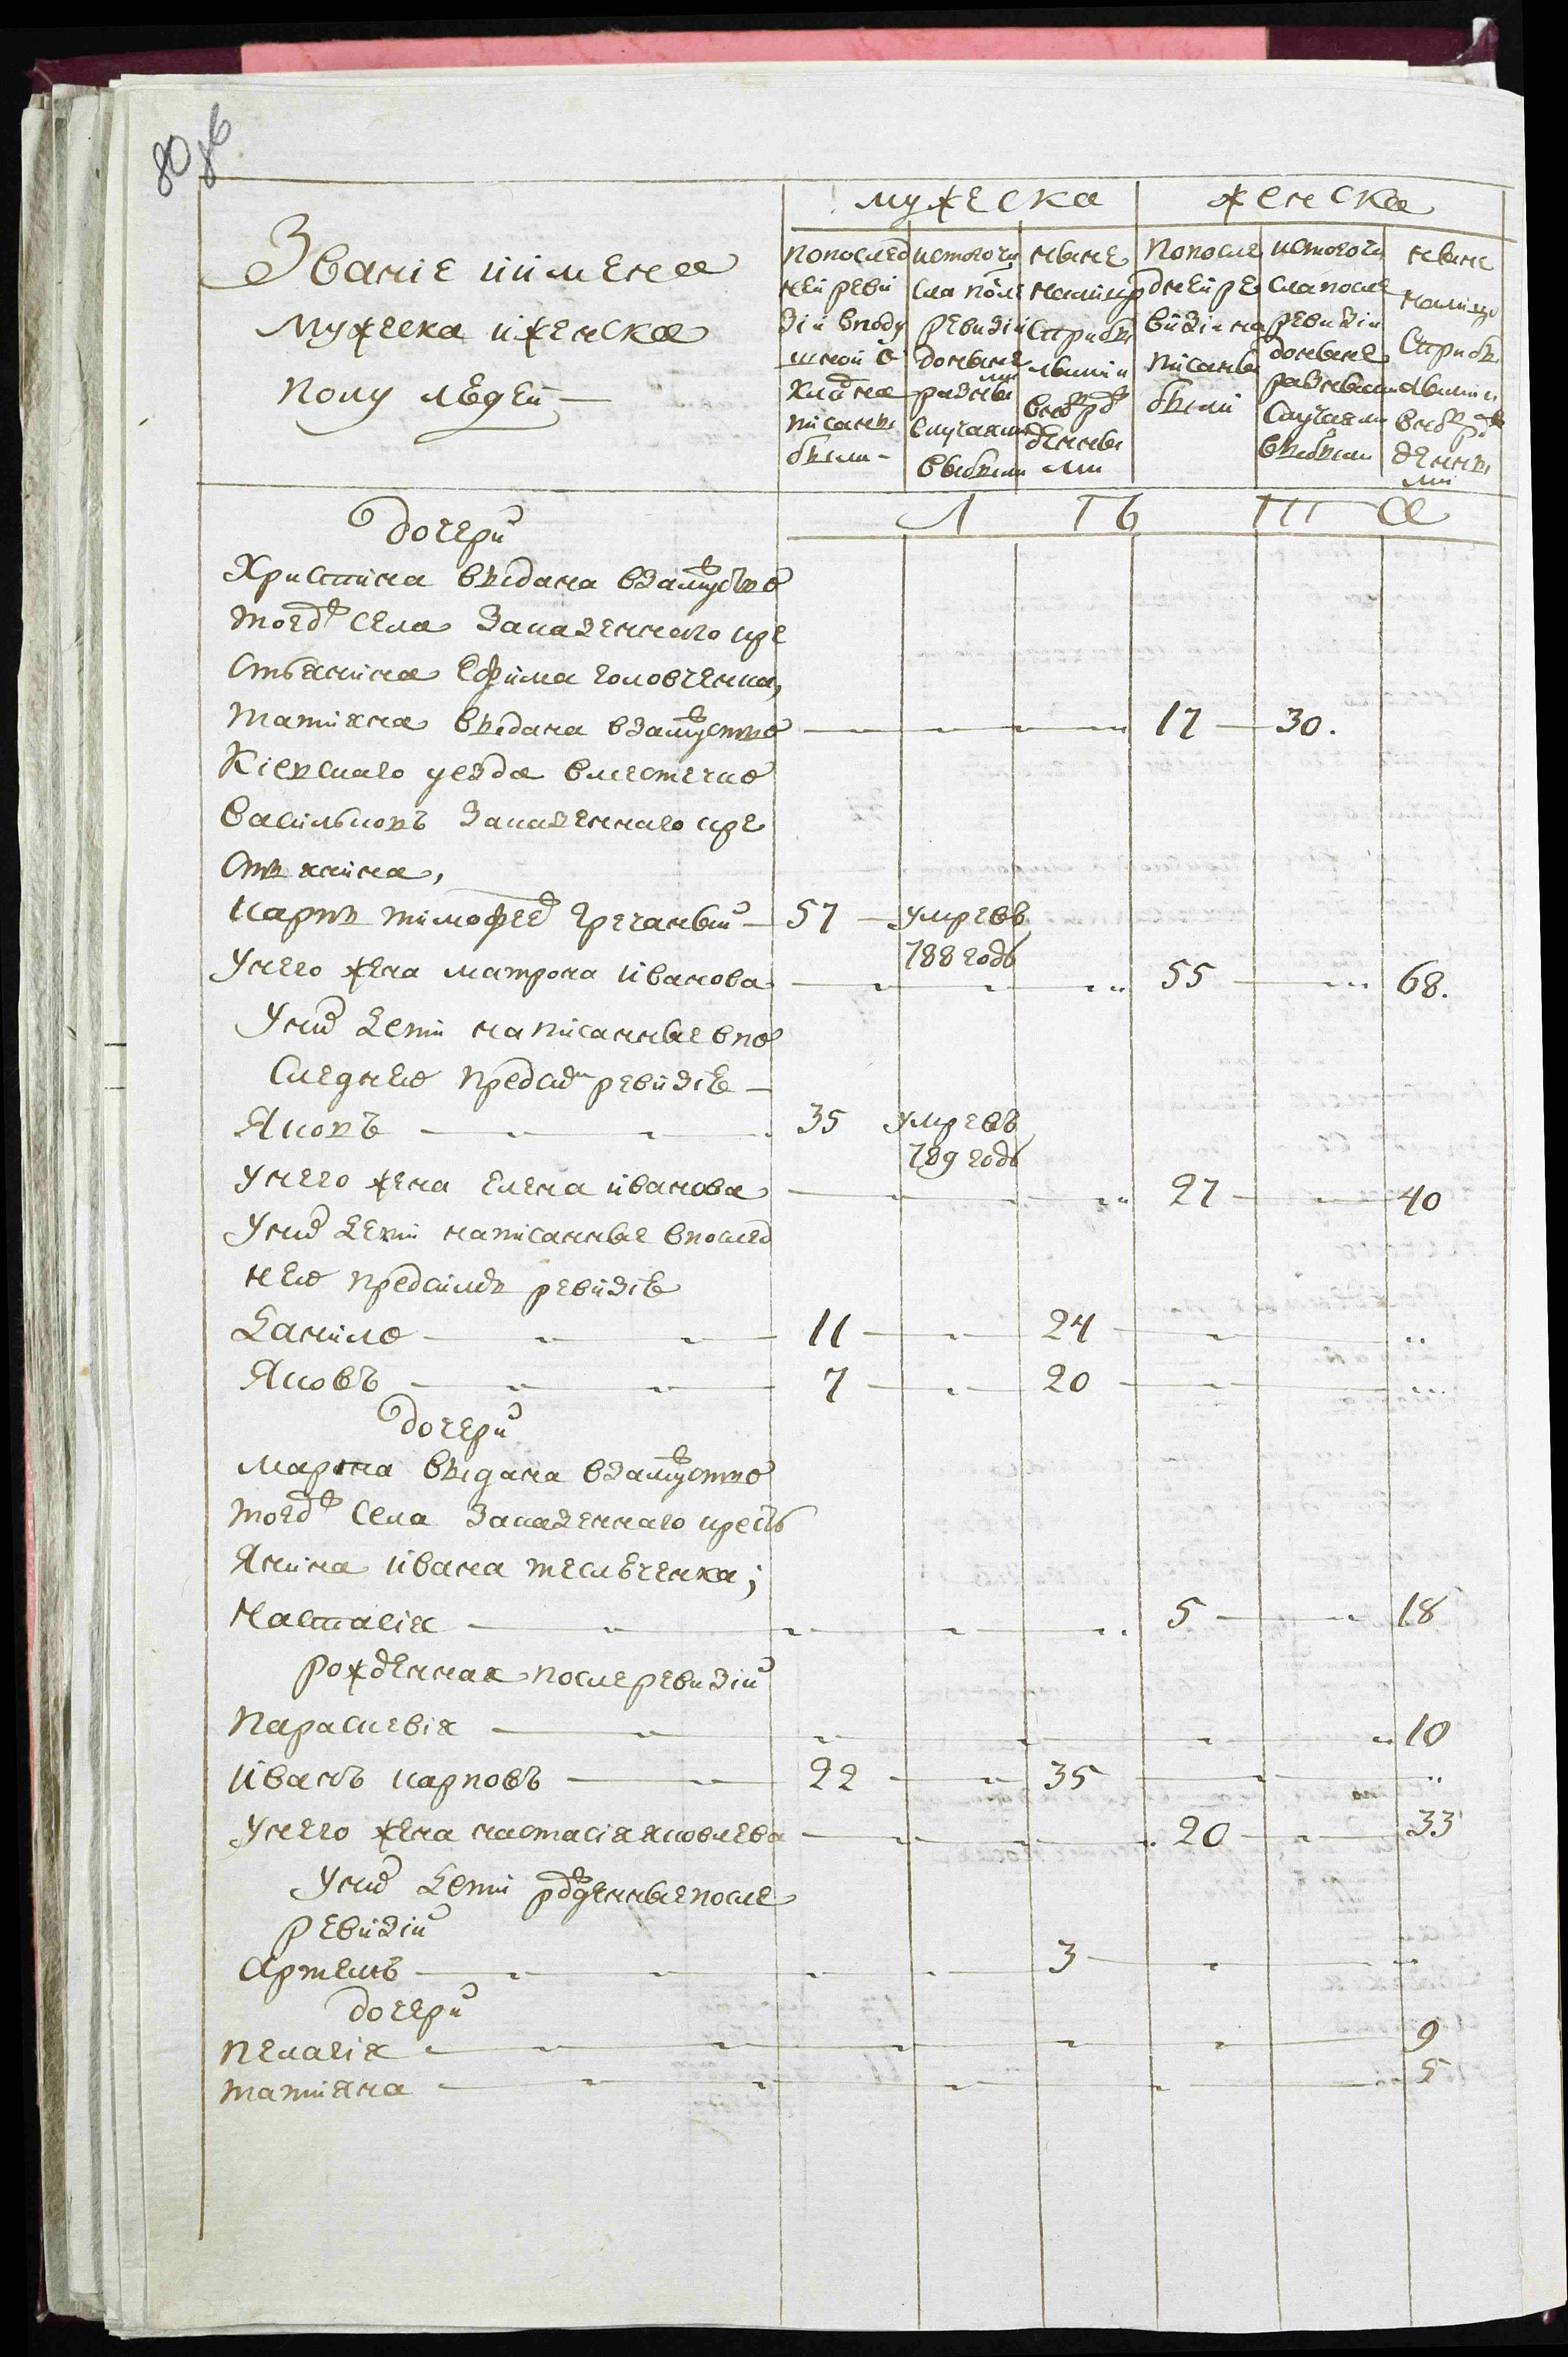 80 об
Званіе и имена
мужеска и женска
полу людей
мужеска
женска
по послед
ней реви
зіи в поду
шной о
кладъ на
писаны
были
из того чи
сла после
ревизіи
до ныне
разными
случаями
выбыли
ныне
на лицо
с прибы
лыми и
вновь рож
денны
ми
по после
дней ре
визіи на
писаны
были
из того чи
сла после
ревизіи
до ныне
разными
случаями
выбыли
ныне
на лицо
с прибы
лыми и
вновь рож
денны
ми
Л Тъ Ш а
дочери
Христина выдана в замуство
тоеж села Западенного кре
стьянина Ефима Головченка,
Татияна выдана в замуство 17 30.
Кіевского уезда в местечко
Васильковъ Западенного кре
стьянина,
Карпъ Тимофеев Гречаный 57 умре въ
788 годъ
у него жена Матрона Иванова 55 68.
у них дети написанные в по
следнею пред сим ревизіе
Яковъ 35 умре въ
789 годъ
у него жена Елена Иванова 27 40
у них дети написанные в послед
нею пред симъ ревизіе
Данило 11 24
Яковъ 7 20
дочери
Марѳна выдана в замуство
тоеж села Западенного кресть
янина Ивана Теслеченка;
Настасія 5 18
рожденная после ревизіи
Параскевія 10
Иванъ Карповъ 22 35
у него жена Настасія Яковлева 20 33
у них дети рожденные после
ревизіи
Артемъ 3
дочери
Пелагія 9
Татияна 5